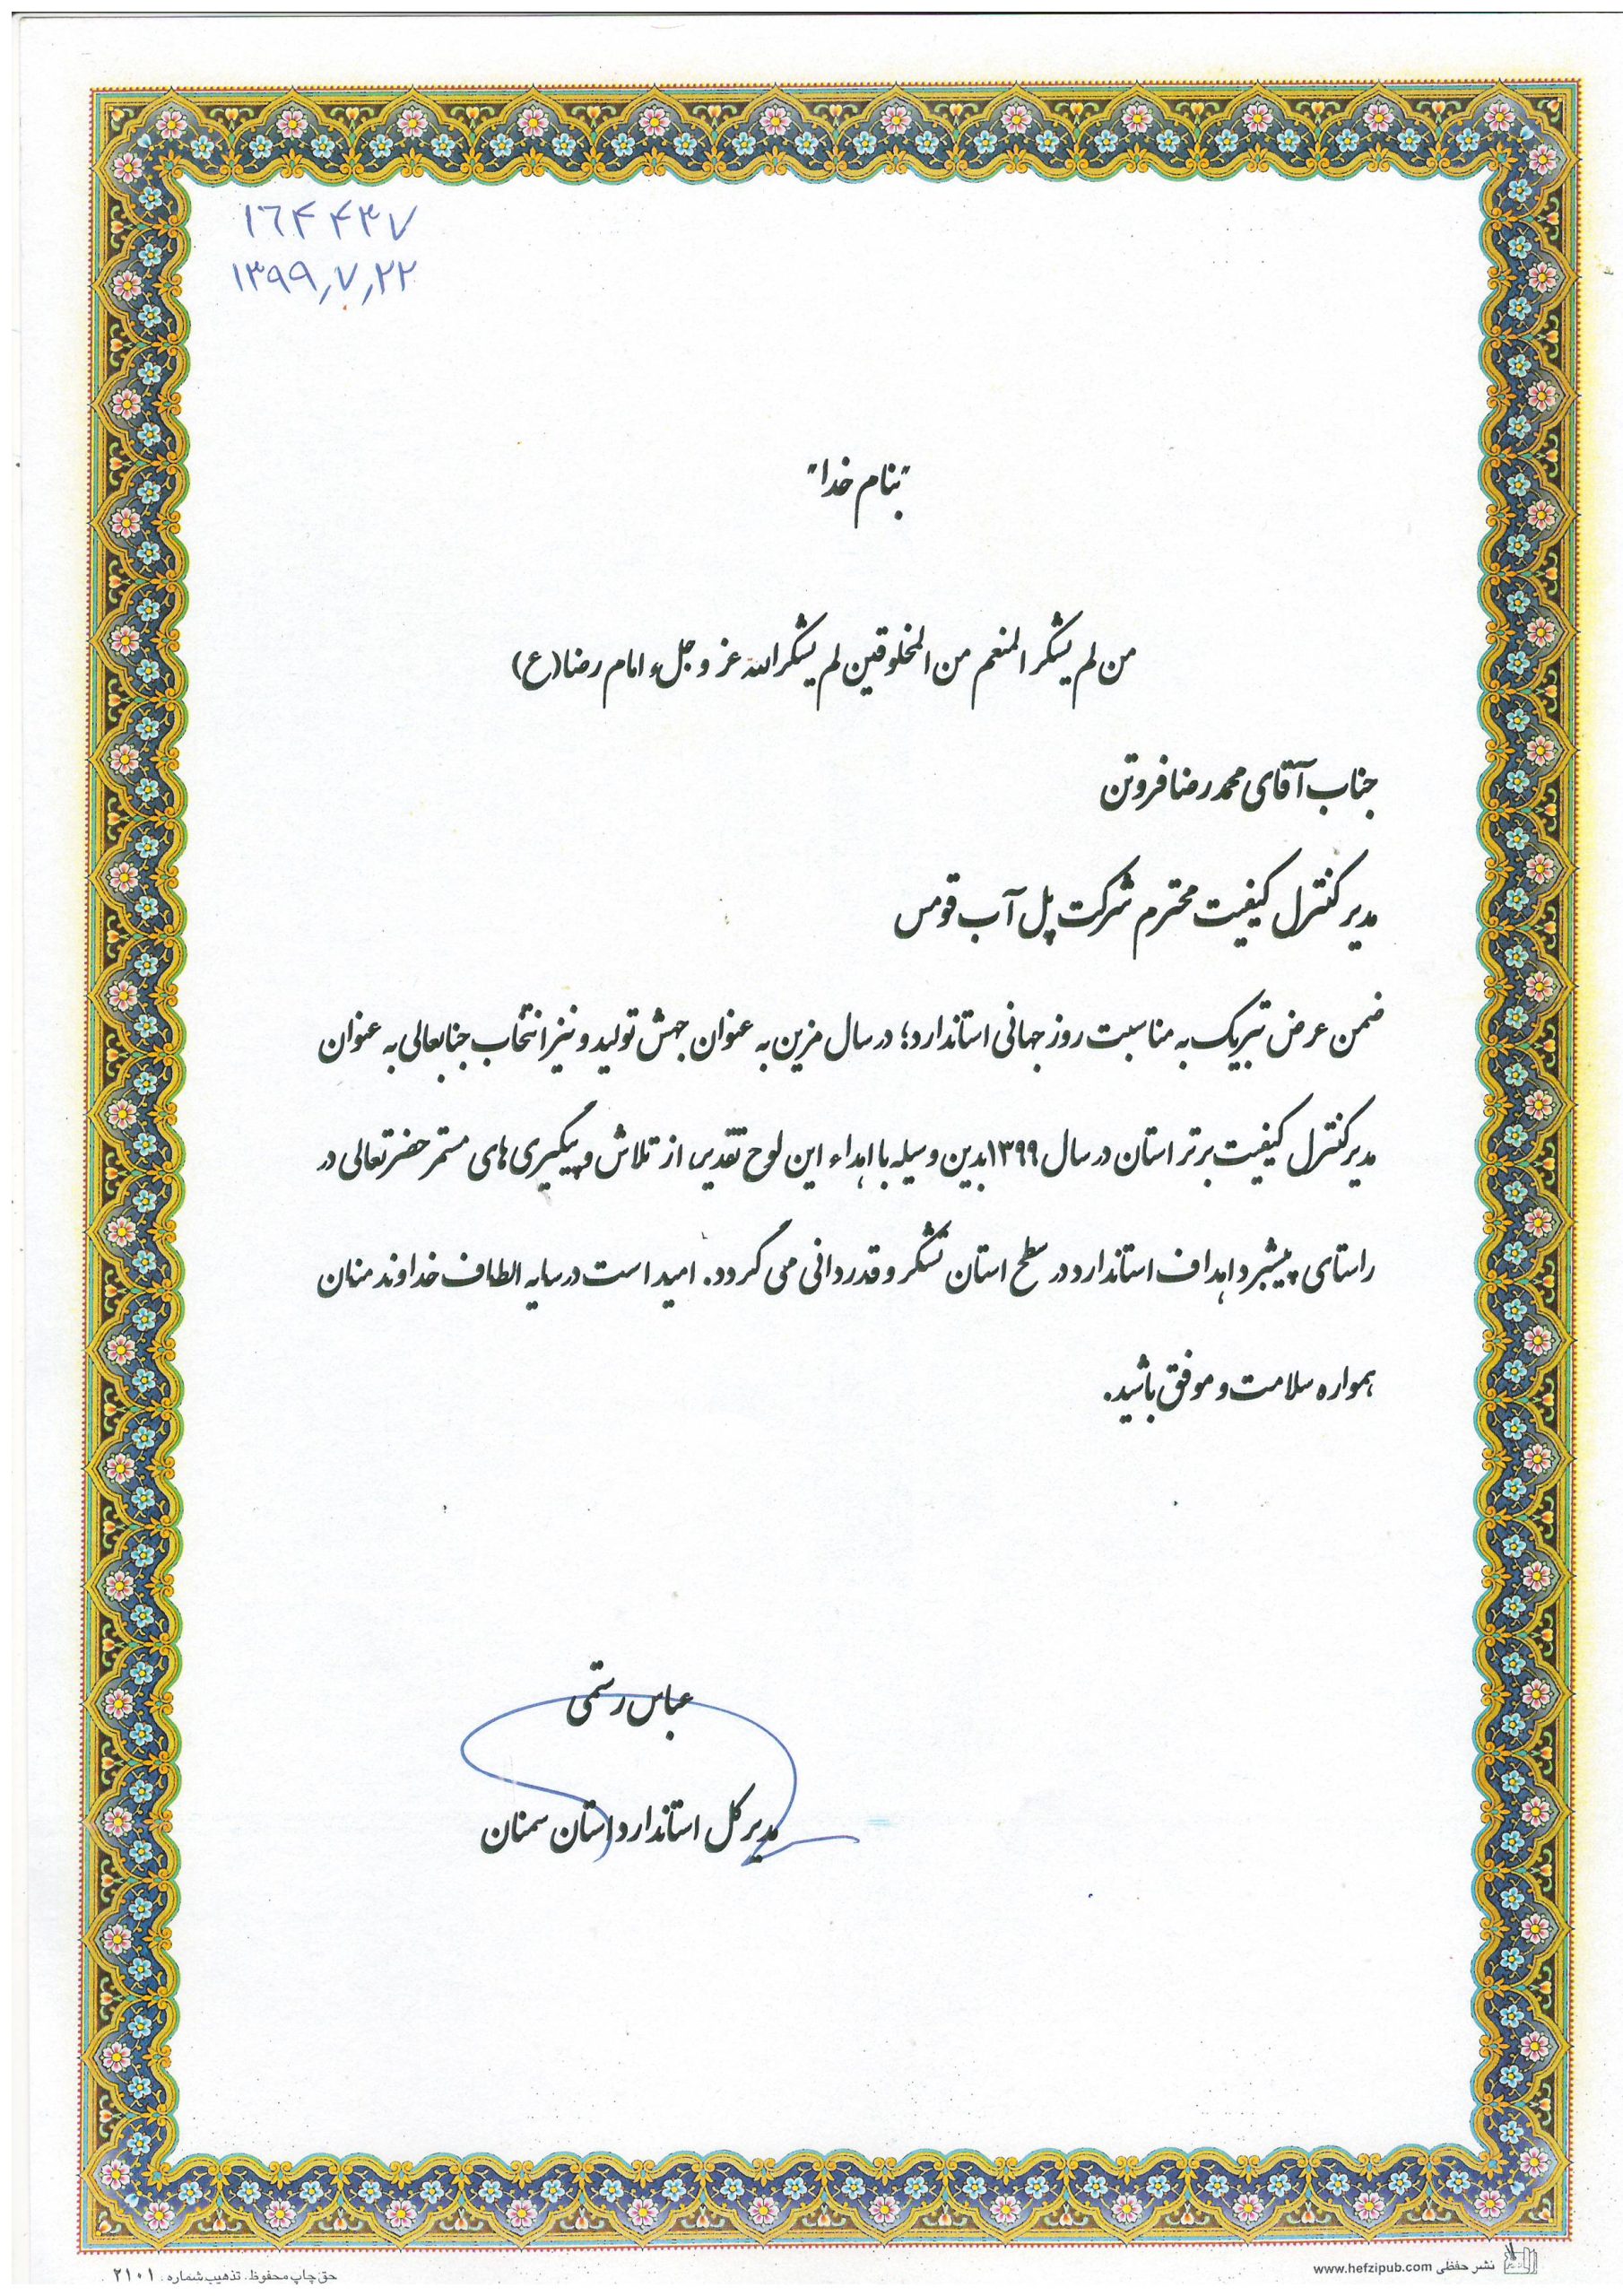 ۱۶۴۴۳۷
۱۳۹۹,۷,۲۲
"بنام خدا"
من لم یشکر المنعم من المخلوقین لم یشکر الله عز و جلء امام رضا(ع)
جناب آقای محمد رضا فروتن
مدیر کنترل کیفیت محترم شرکت پل آب قومس
ضمن عرض تبریک به مناسبت روز جهانی استاندارد؛ در سال مزین به عنوان جهش تولید و نیز انتخاب جنابعالی به عنوان
مدیر کنترل کیفیت برتر استان در سال ۱۳۹۹بدین وسیله با اهداء این لوح تقدیر، از تلاش و پیگیری های مستمر حضرتعالی در
راستای پیشبرد اهداف استاندارد در سطح استان تشکر و قدردانی می گردد. امید است در سایه الطاف خداوند منان
همواره سلامت و موفق باشید.
عباس رستمی
مدیر کل استاندارد استان سمنان
نشر حفظی www.hefzipub.com
حق چاپ محفوظ. تذهیب شماره . ۲۱۰۱